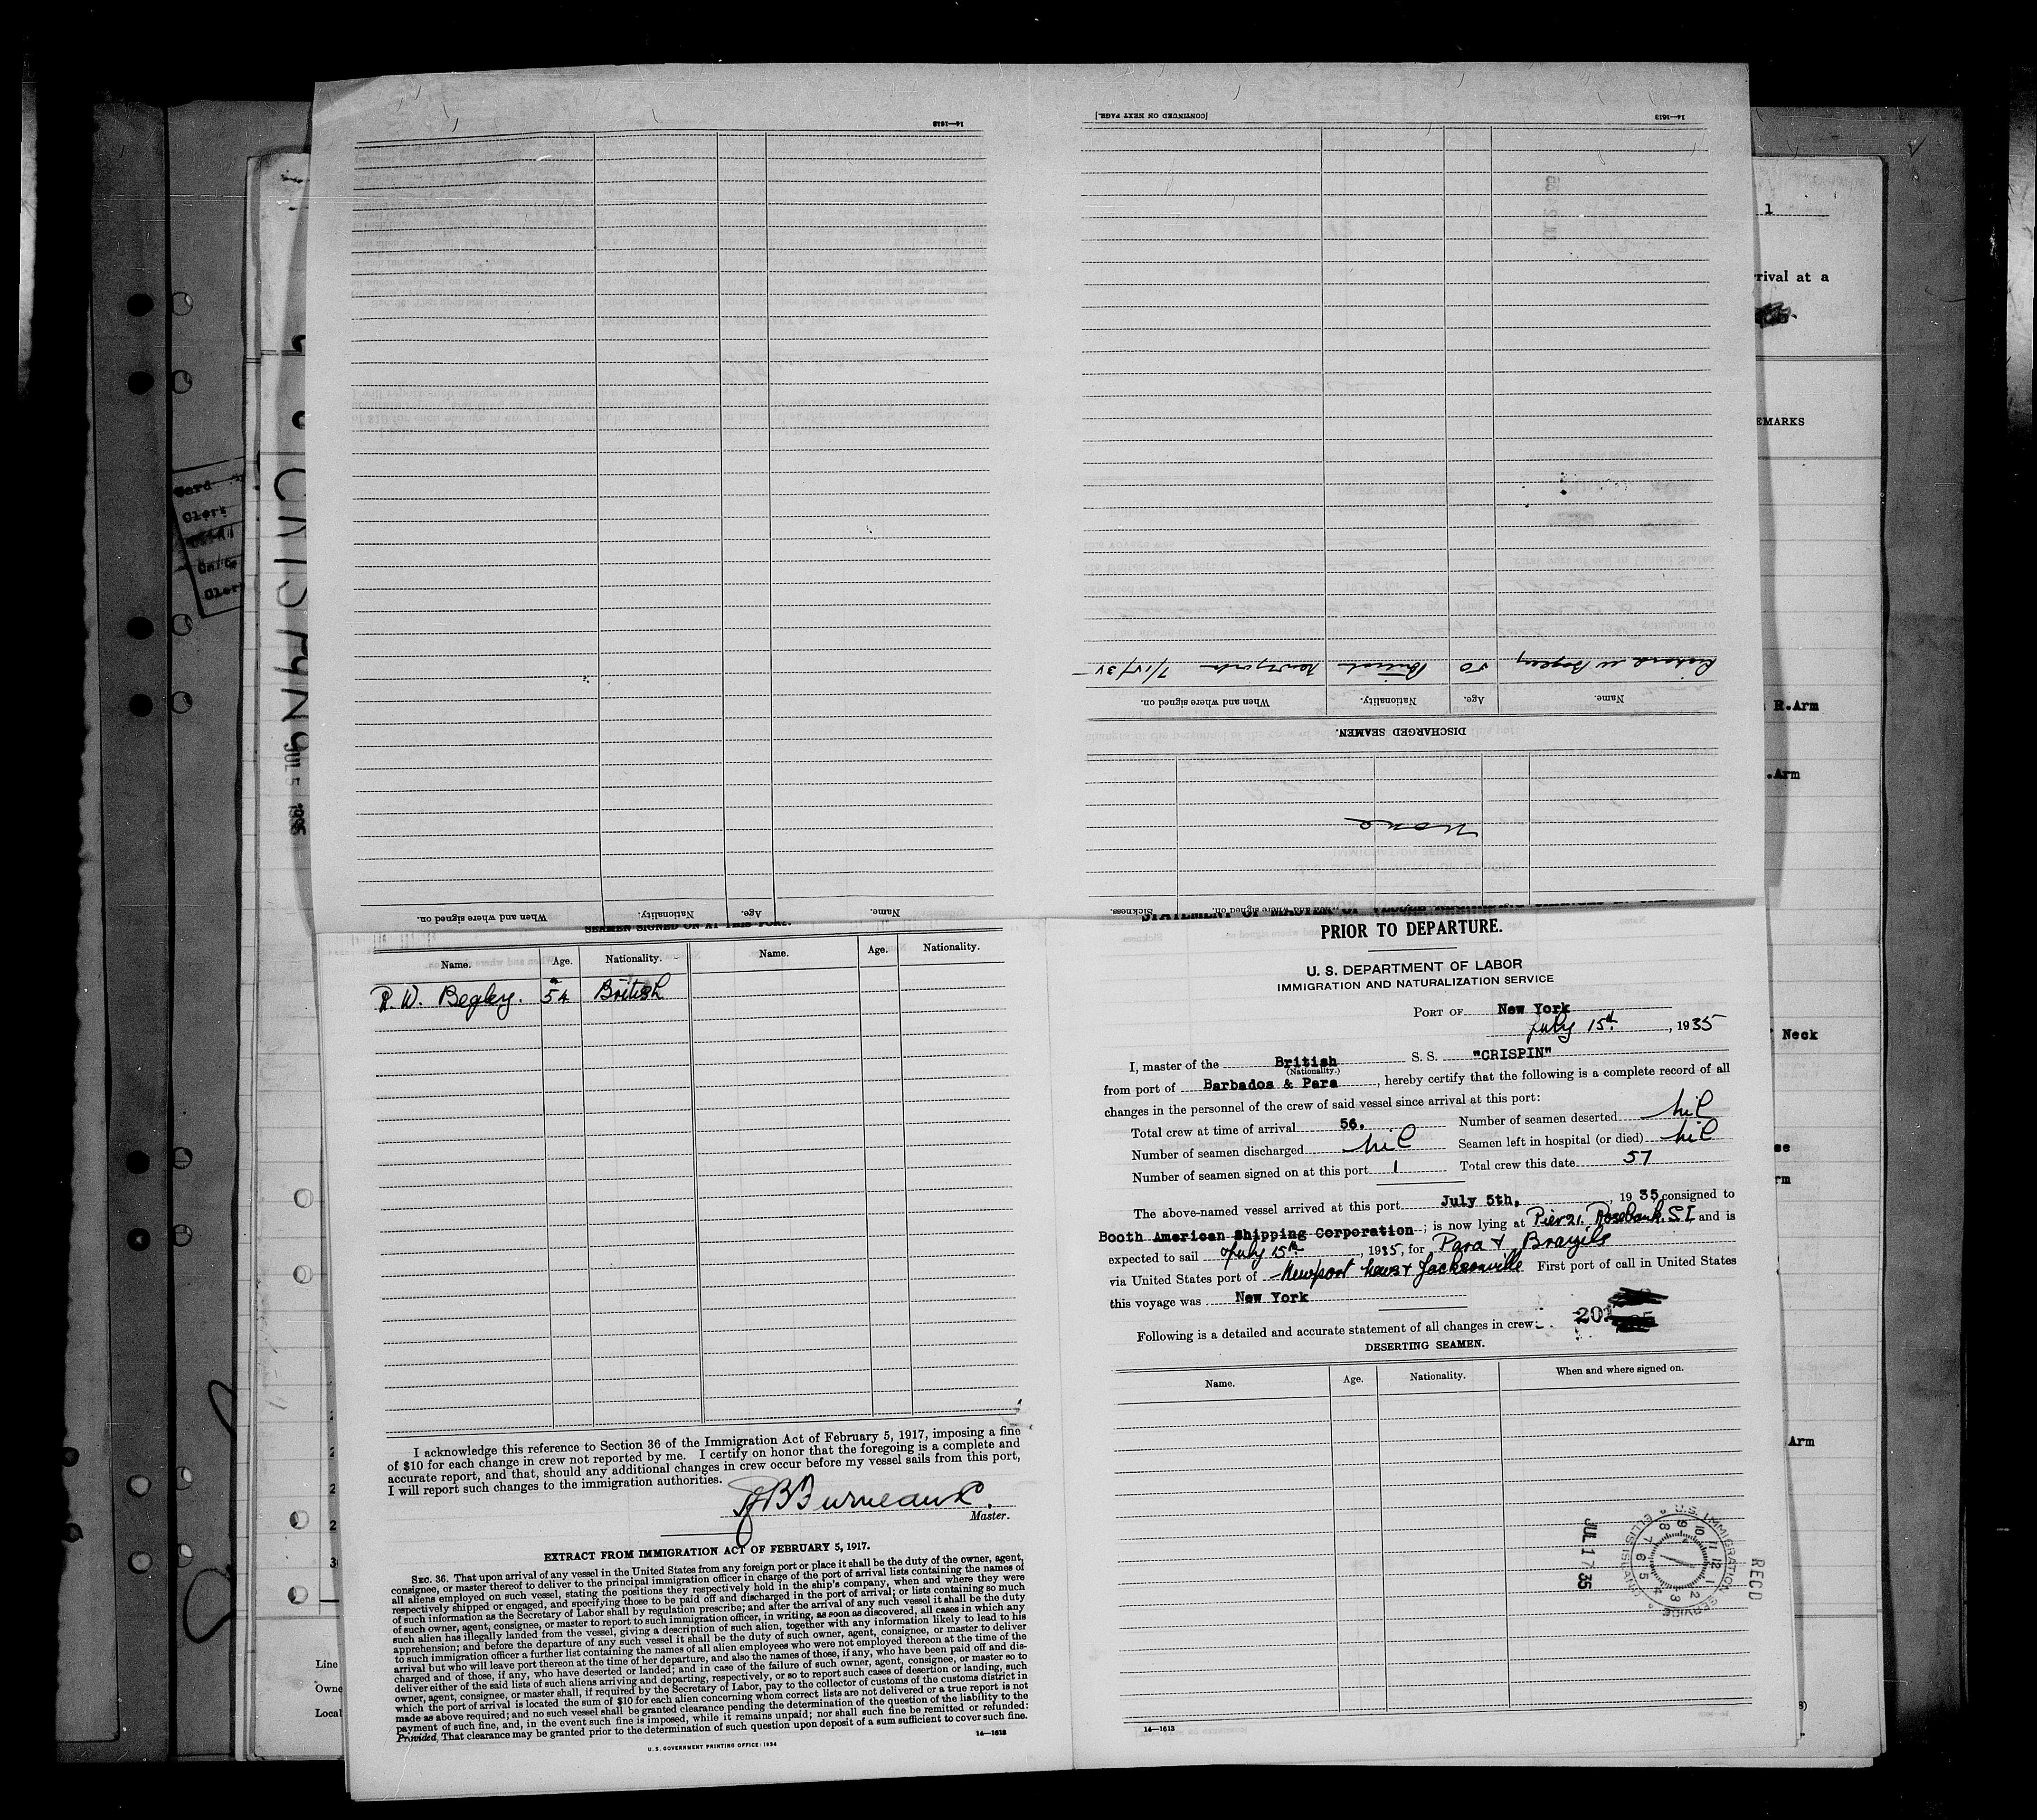 14—1613
[CONTINUED ON NEXT PAGE.]
14—1613
Richard W Begley 50 British Newport 7/15/35
Name. Age. Nationality. When and where signed on.
DISCHARGED SEAMEN.
None
Name. Age. Nationality. When and where signed on.
When and where signed on. Sickness.
SEAMEN SIGNED ON AT THIS PORT.
Name. Age. Nationality. Name. Age. Nationality.
R. W. Begley. 54 British
I acknowledge this reference to Section 36 of the Immigration Act of February 5, 1917, imposing a fine
of $10 for each change in crew not reported by me. I certify on honor that the foregoing is a complete and
accurate report, and that, should any additional changes in crew occur before my vessel sails from this port,
I will report such changes to the immigration authorities.
Master.
EXTRACT FROM IMMIGRATION ACT OF FEBRUARY 5, 1917.
SEC. 36. That upon arrival of any vessel in the United States from any foreign port or place it shall be the duty of the owner, agent,
consignee, or master thereof to deliver to the principal immigration officer in charge of the port of arrival lists containing the names of
all aliens employed on such vessel, stating the positions they respectively hold in the ship's company, when and where they were
respectively shipped or engaged, and specifying those to be paid off and discharged in the port of arrival; or lists containing so much
of such information as the Secretary of Labor shall by regulation prescribe; and after the arrival of any such vessel it shall be the duty
of such owner, agent, consignee, or master to report to such immigration officer, in writing, as soon as discovered, all cases in which any
such alien has illegally landed from the vessel, giving a description of such alien, together with any information likely to lead to his
apprehension; and before the departure of any such vessel it shall be the duty of such owner, agent, consignee, or master to deliver
to such immigration officer a further list containing the names of all alien employees who were not employed thereon at the time of the
arrival but who will leave port thereon at the time of her departure, and also the names of those, if any, who have been paid off and dis-
charged and of those, if any, who have deserted or landed; and in case of the failure of such owner, agent, consignee, or master so to
deliver either of the said lists of such aliens arriving and departing, respectively, or so to report such cases of desertion or landing, such
owner, agent, consignee, or master shall, if required by the Secretary of Labor, pay to the collector of customs of the customs district in
which the port of arrival is located the sum of $10 for each alien concerning whom correct lists are not delivered or a true report is not
made as above required; and no such vessel shall be granted clearance pending the determination of the question of the liability to the
payment of such fine, and, in the event such fine is imposed, while it remains unpaid; nor shall such fine be remitted or refunded:
Provided, That clearance may be granted prior to the determination of such question upon deposit of a sum sufficient to cover such fine.
14—1613
U. S. GOVERNMENT PRINTING OFFICE: 1934
PRIOR TO DEPARTURE.
U. S. DEPARTMENT OF LABOR
IMMIGRATION AND NATURALIZATION SERVICE
PORT OF New York
July 15th, 1935
I, master of the British S. S. "CRISPIN"
(Nationality.)
from port of Barbados & Para, hereby certify that the following is a complete record of all
changes in the personnel of the crew of said vessel since arrival at this port:
Total crew at time of arrival 56. Number of seamen deserted nil
Number of seamen discharged nil Seamen left in hospital (or died) nil
Number of seamen signed on at this port 1 Total crew this date 57
The above-named vessel arrived at this port July 5th, 1935, consigned to
Booth American Shipping Corporation; is now lying at Pier 21, Rosebank, S.I. and is
expected to sail July 15th, 1935, for Para & Brazils
via United States port of Newport News & Jacksonville First port of call in United States
this voyage was New York
201
Following is a detailed and accurate statement of all changes in crew:
DESERTING SEAMEN.
Name. Age. Nationality. When and where signed on.
14—1613
U.S. IMMIGRATION SERVICE
ELLIS ISLAND
JUL 17 35
RECD
JUL 5 1935
Clerk
1
rival at a
EMARKS
R.Arm
.Arm
Neck
se
rm
Arm
Line
Owne
Local